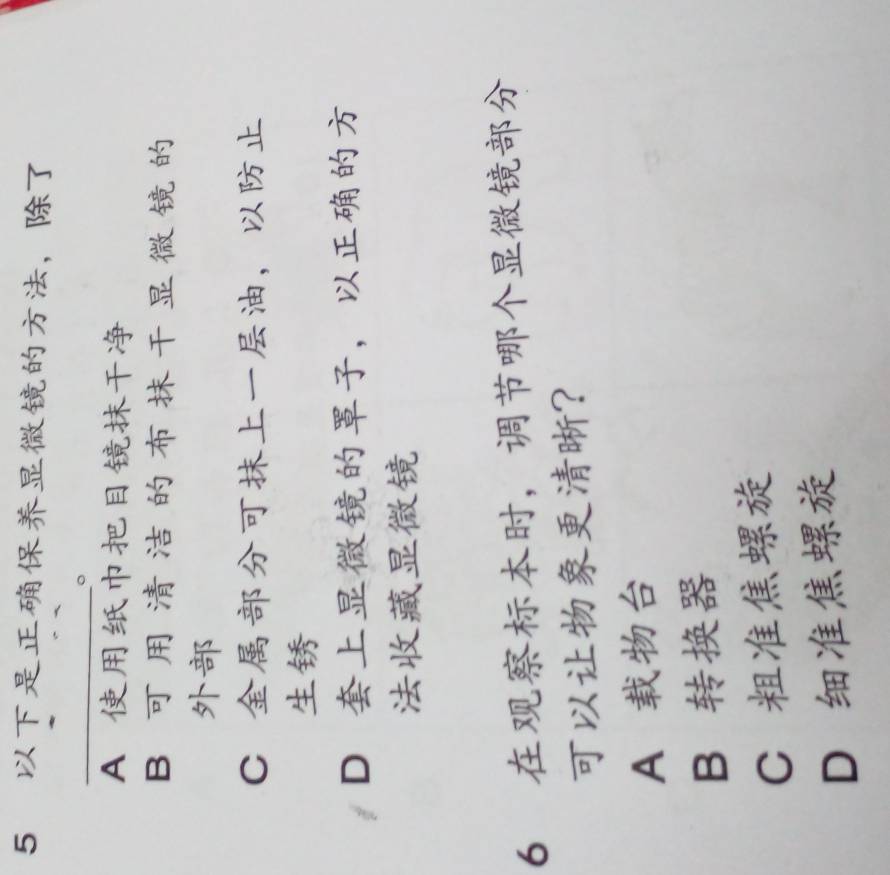 5 以下是正确保养显微镜的方法，除了
______。
A 使用纸巾把目镜抹干净
B 可用清洁的布抹干显微镜的
外部
C 金属部分可抹上一层油，以防止
生锈
D 套上显微镜的罩子，以正确的方
法收藏显微镜
6 在观察标本时，调节哪个显微镜部分
可以让物象更清晰？
A 载物台
B 转换器
C 粗准焦螺旋
D 细准焦螺旋